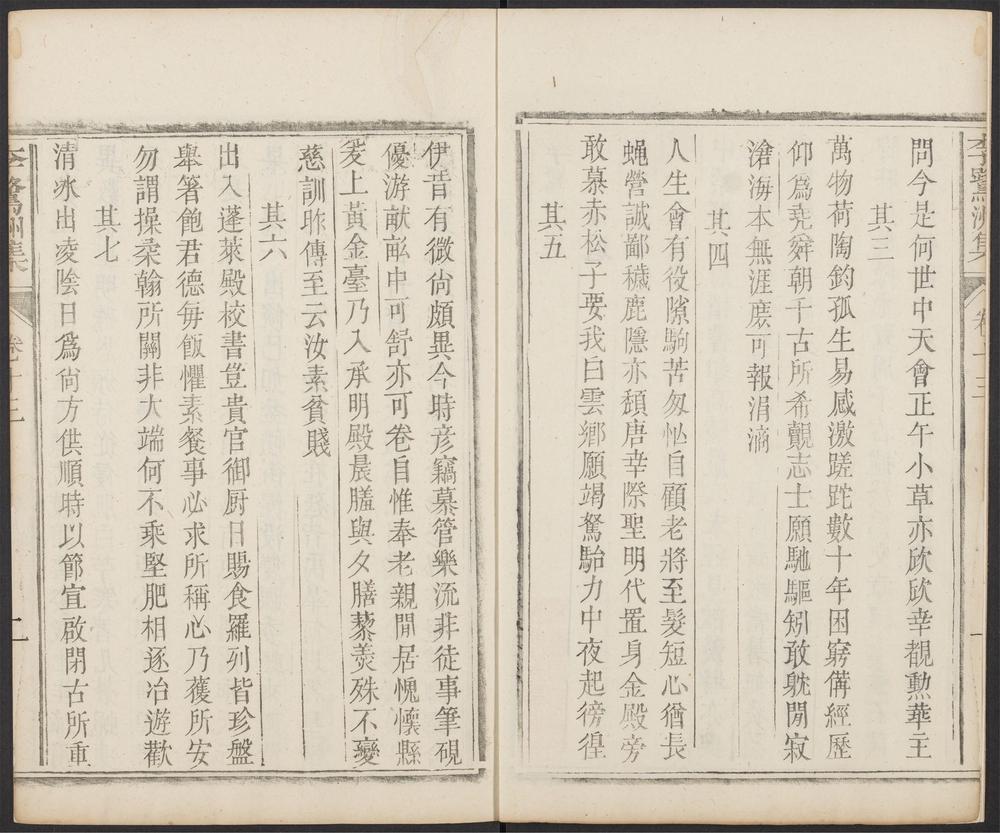 李鷺洲集
卷十三
一
問今是何世中天會正午小草亦欣欣幸覩勲華主
其三
萬物荷陶鈞孤生易感激蹉跎數十年困窮備經歷
仰爲堯舜朝千古所希覿志士願馳驅矧敢躭閒寂
滄海本無涯庻可報涓滴
其四
人生會有役隙駒苦匆怭自顧老將至髮短心猶長
蝇營誠鄙穢鹿隱亦頽唐幸際聖明代置身金殿旁
敢慕赤松子要我白雲鄉願竭駑駘力中夜起徬徨
其五
伊昔有微尙頗異今時彦竊慕管樂流非徒事筆硯
優游献畝中可舒亦可卷自惟奉老親閒居愧懷縣
爰上黃金臺乃入承明殿晨膳與夕膳藜羮殊不變
慈訓昨傳至云汝素貧賤
其六
出入蓬萊殿校書豈貴官御厨日賜食羅列皆珍盤
舉箸飽君德每飯懼素餐事必求所稱心乃獲所安
勿謂操柔翰所關非大端何不乘堅肥相逐冶遊歡
其七
清氷出凌陰日爲尙方供順時以節宣啟閉古所重
李鷺洲集
卷十三
二